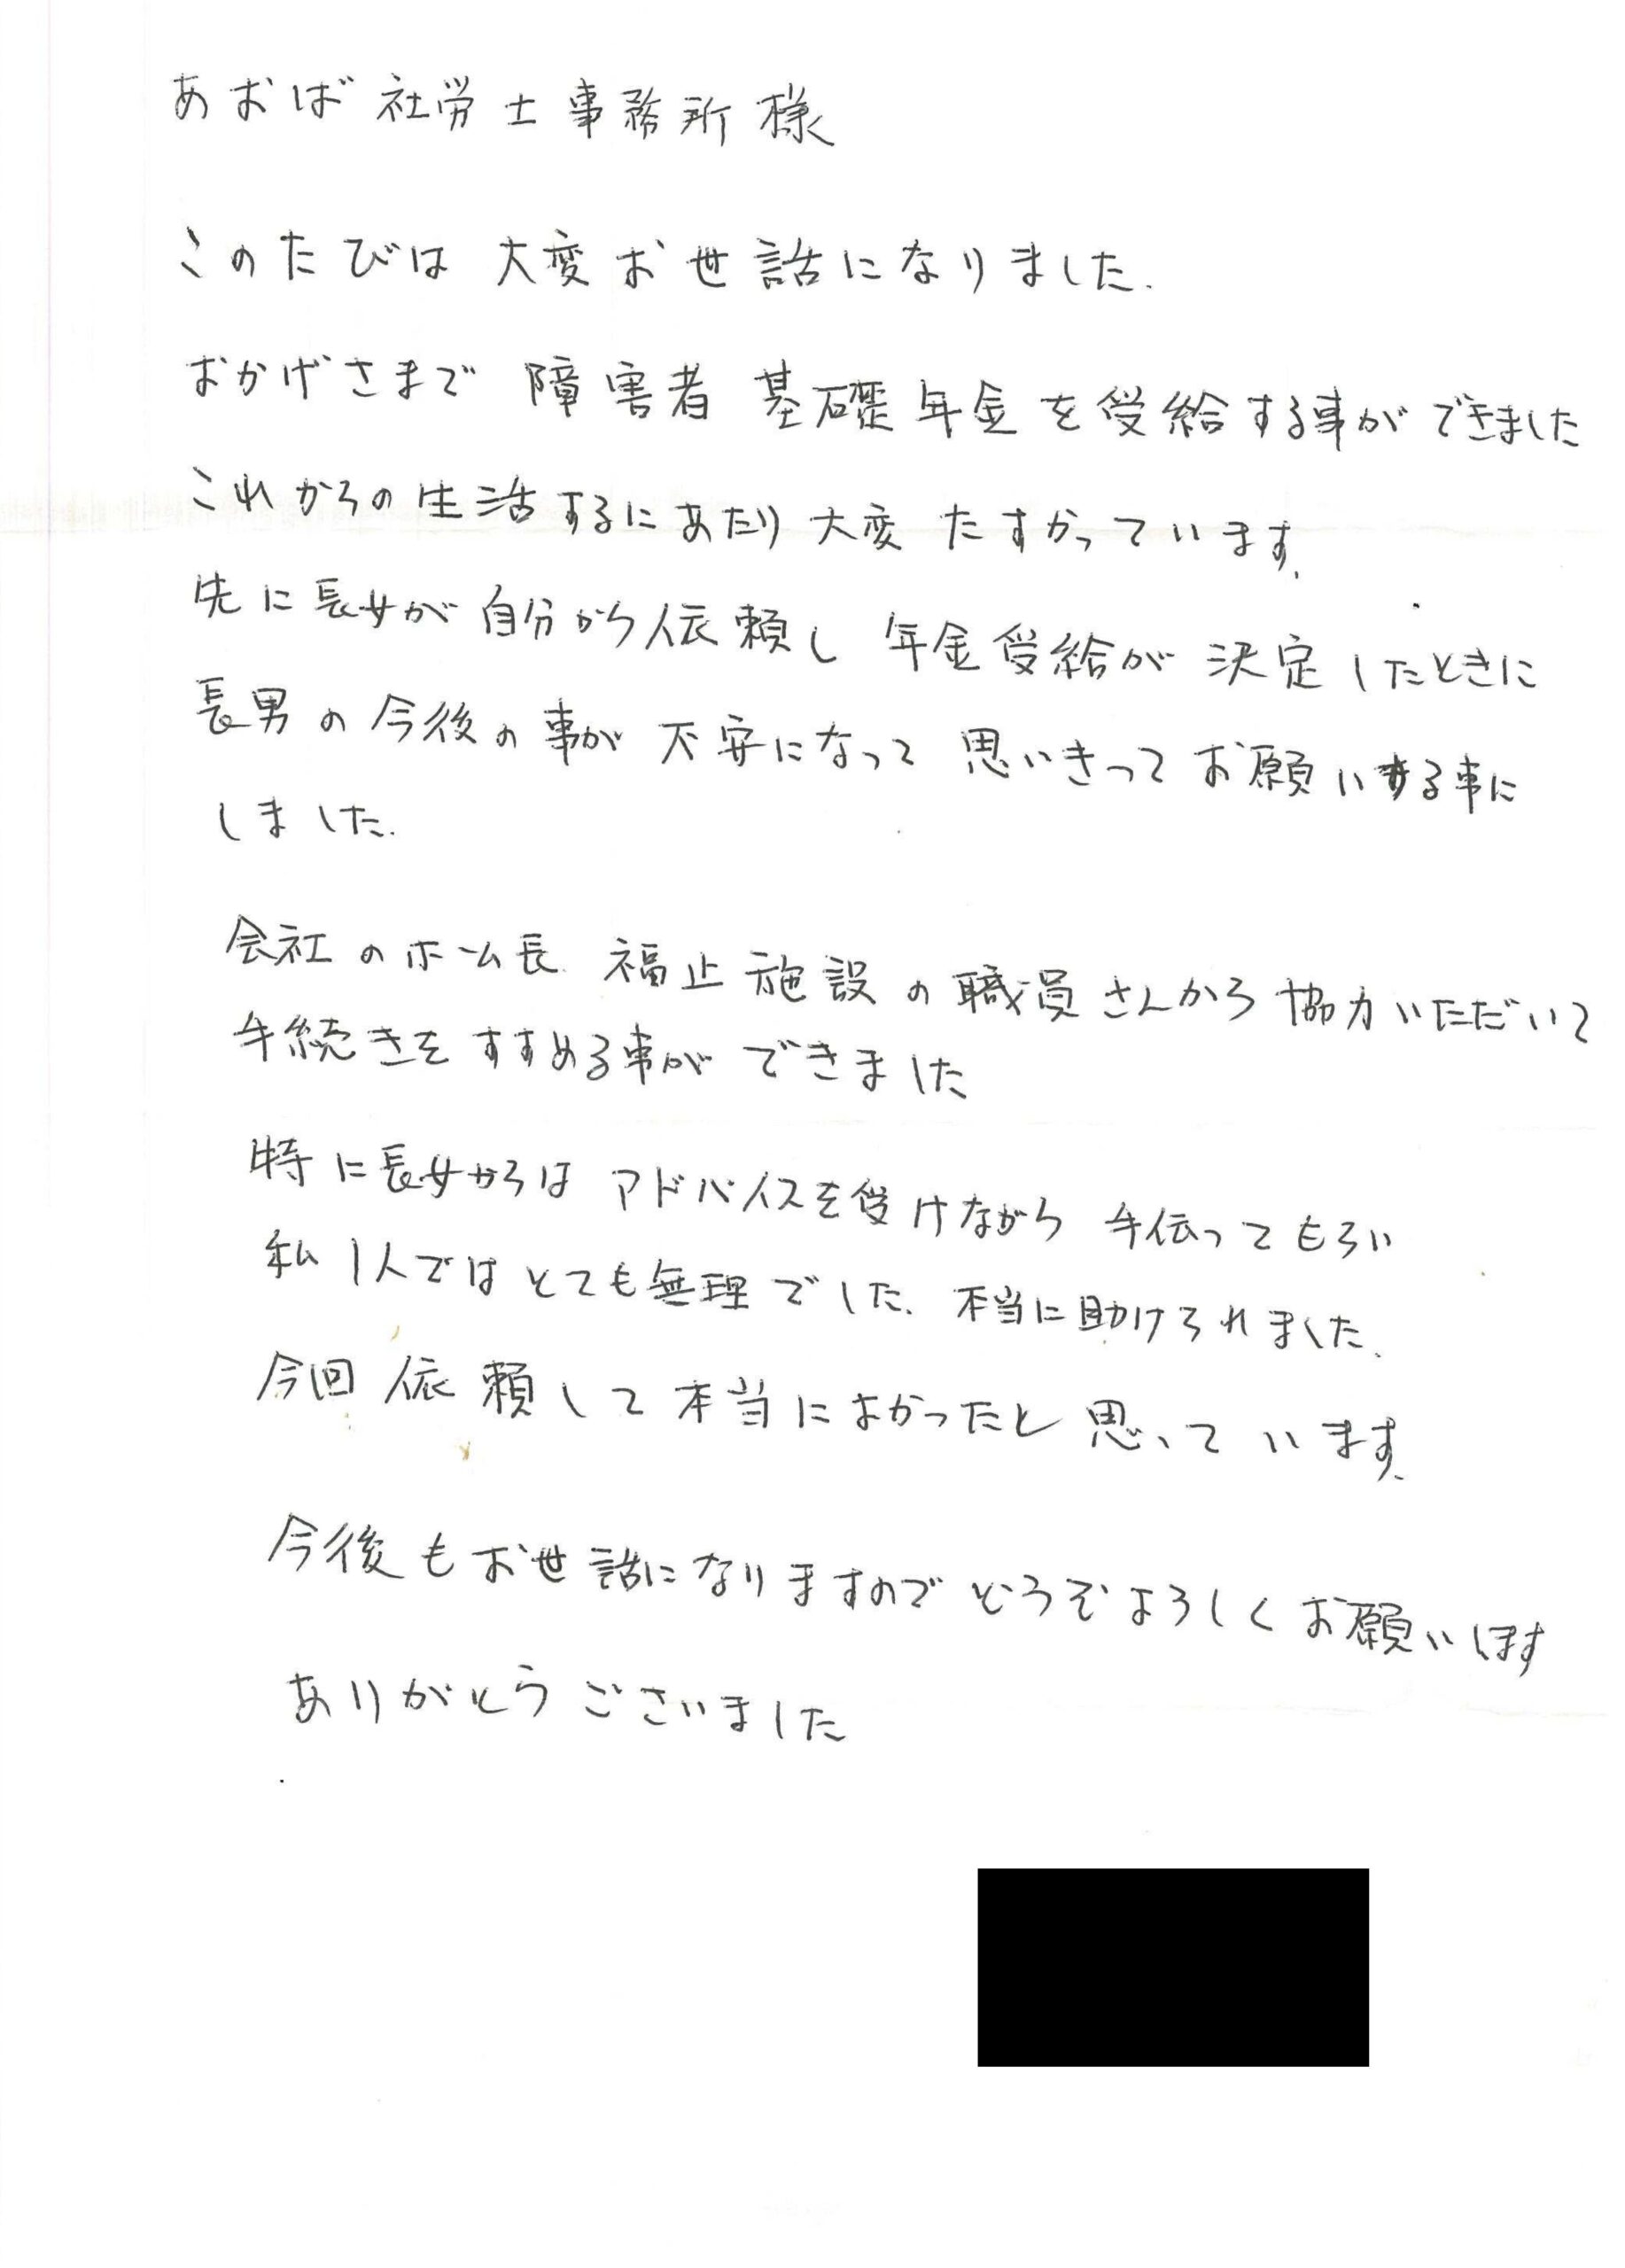 あおば社労士事務所様
このたびは大変お世話になりました.
おかげさまで障害者基礎年金を受給する事ができました
これからの生活するにあたり大変たすかっています.
先に長女が自分から依頼し年金受給が決定したときに
長男の今後の事が不安になって思いきってお願いする事に
しました.
会社のホーム長.福止施設の職員さんから協力いただいて
手続きをすすめる事ができました
特に長女からはアドバイスを受けながら手伝ってもらい
私1人ではとても無理でした.本当に助けられました.
今回依頼して本当によかったと思っています.
今後もお世話になりますのでどうぞよろしくお願いします
ありがとうございました